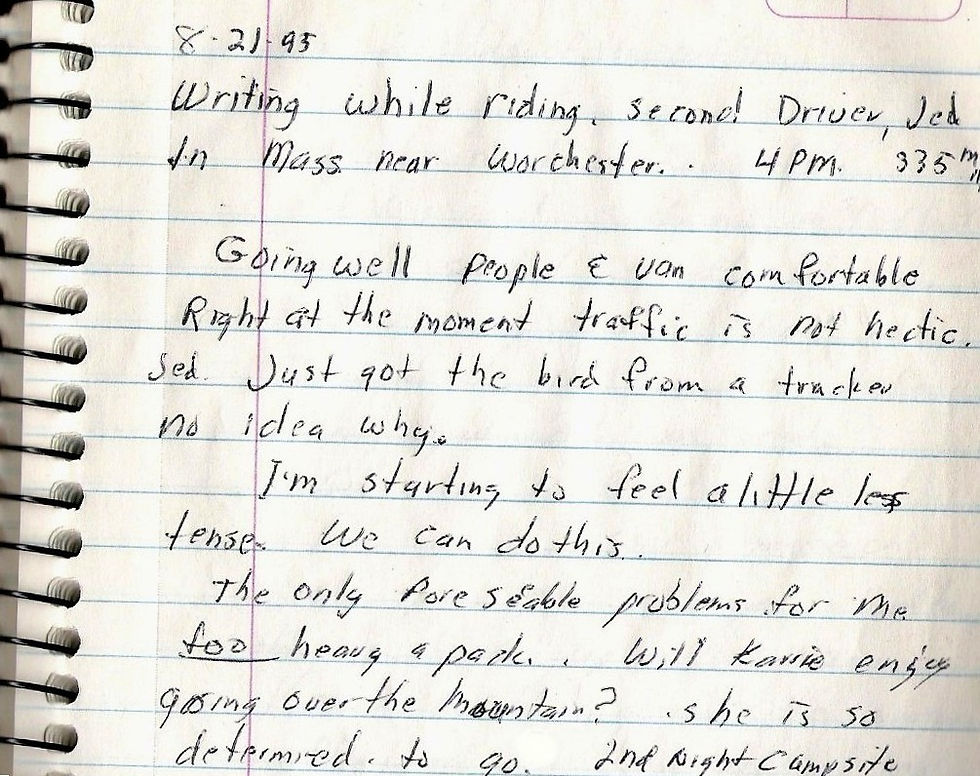 8-21-95
Writing while riding. second Driver, Jed
In Mass near Worchester. . 4 PM. 335
Going well people & van comfortable
Right at the moment traffic is not hectic.
Jed. Just got the bird from a trucker
no idea why.
I'm starting to feel a little less
tense. We can do this.
The only foreseable problems for me
too heavy a pack. . Will Karrie enjoy
going over the Mountain? . she is so
determired. to go. 2nd Night Campsite